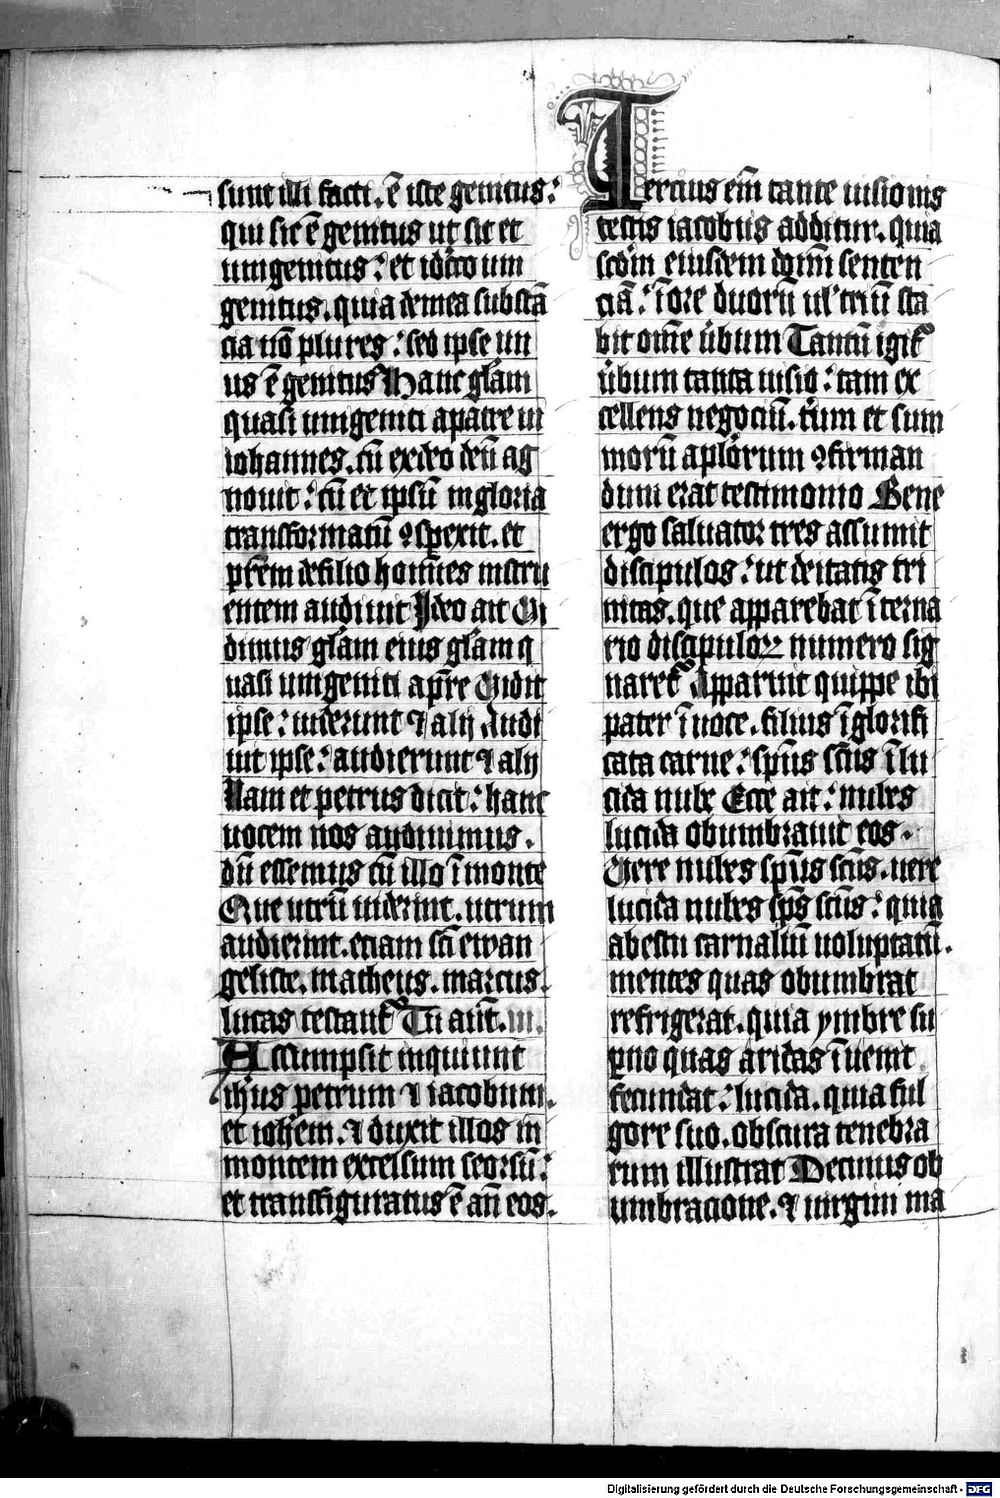 sunt illi facti. ē iste genitus:
qui sic ē genitus ut sic et
unigenitus: et idcirco um
genitus. quia de mea substā
cia nō plures: sed ipse un
us ē genitus Hanc gl̄am
quasi unigeniti a patre ui
iohannes. cū ex deo deū ag
nouit: cū et ipsū in gloria
transformatū ꝯspexit. et
p̄rem de filio hoīnes instru
entem audiuit Ideo ait Vi
dimus gl̄am eius gl̄am q
uasi unigeniti a p̄re Vidit
ipse: uiderunt ⁊ alij Audi
uit ipse: audierunt ⁊ alij
Nam et petrus dicit: hanc
uocem nos audiuimus.
dū essemus cū illo ī monte
Que utrū uiderint. utrum
audierint. eciam sc̄i ewan
geliste. matheus. marcus.
lucas testant᷑ Tu aūt. iii.
Assumpsit inquiunt
ih̄us petrum ⁊ iacobum.
et ioh̄em. ⁊ duxit illos in
montem excelsum seorsū:
et transfiguratus ē an̄ eos.
Tercius em̄ tante uisionis
testis iacobus additur. quia
scd̄m eiusdem dom̄i senten
ciā: ī ore duorū ul' triū sta
bit om̄e ūbum Tantū igit᷑
ūbum tanta uisio: tam ex
cellens negociū. t̄um et sum
morū aplōrum ꝯfirman
dum erat testimonio Bene
ergo saluator tres assumit
discipulos: ut deitatis tri
nitas. que apparebat ī terna
rio discipuloꝝ numero sig
naret᷑ Apparuit quippe ibi
pater ī uoce. filius ī glorifi
cata carne: sp̄us sc̄us ī lu
cida nube Ecce ait: nubes
lucida obumbrauit eos.
Vere nubes sp̄us sc̄us. uere
lucida nubes sp̄s sc̄us: quia
ab estu carnaliū uoluptatū.
mentes quas obumbrat
refrigerat. quia ymbre su
ꝑno quas aridas īuenit
fecundat: lucida. quia ful
gore suo. obscura tenebra
rum illustrat Decius ob
umbracione. ⁊ uirgini ma
Digitalisierung gefördert durch die Deutsche Forschungsgemeinschaft - DFG